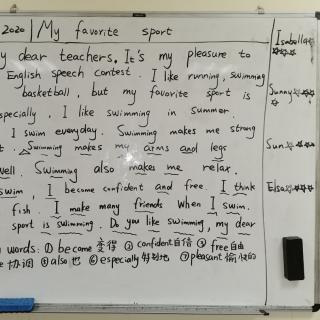 2020 | My favorite sport
y dear teachers. It's my pleasure to
English speech contest. I like running, swimming
basketball, but my favorite sport is
specially, I like swimming in summer.
I swim everyday. Swimming makes me strong
t. Swimming makes my arms and legs
well. Swimming also makes me relax.
swim, I become confident and free. I think
fish. I make many friends when I swim.
sport is swimming. Do you like swimming, my dear
words: ① become 变得 ② confident 自信 ③ free 自由
协调 ⑤ also 也 ⑥ especially 特别地 ⑦ pleasant 愉快的
Isabella
Sunny
Sun
Elsa